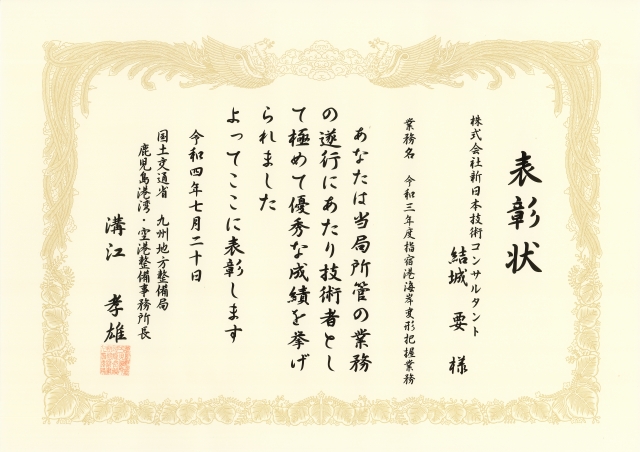 表彰状
株式会社新日本技術コンサルタント
結城 要 様
業務名 令和三年度指宿港海岸変形把握業務
あなたは当局所管の業務
の遂行にあたり技術者とし
て極めて優秀な成績を挙げ
られました
よってここに表彰します
令和四年七月二十日
国土交通省 九州地方整備局
鹿児島港湾・空港整備事務所長
溝江 孝雄